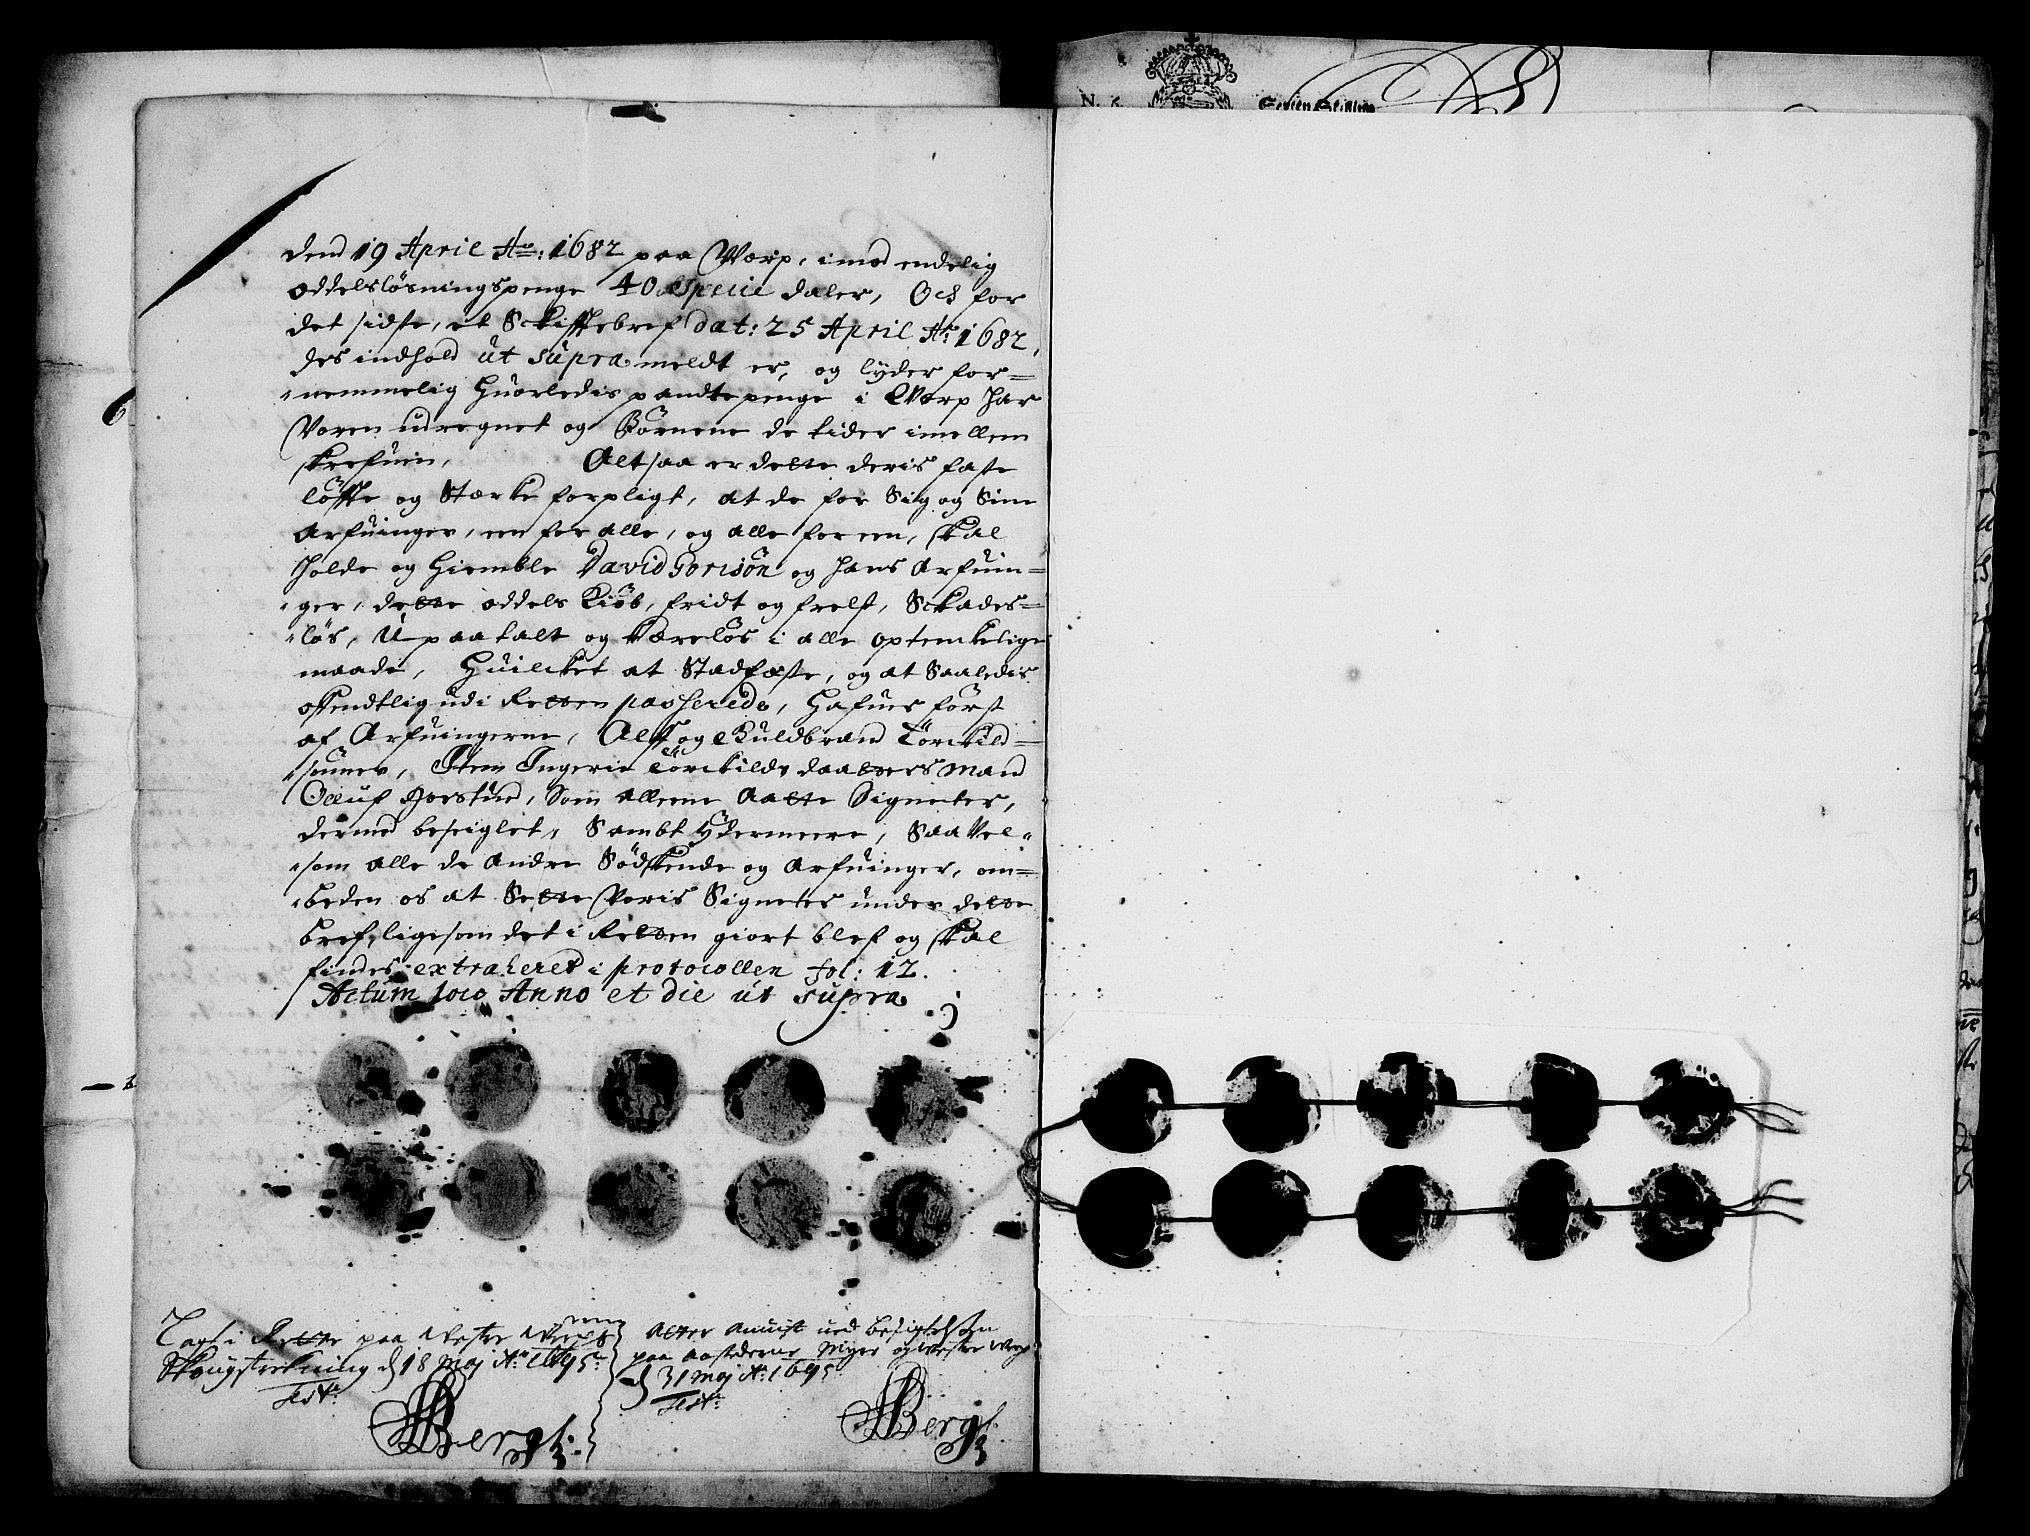 N. 6.
Sexten Skilling
dend 19 April Ao: 1682 paa Worp, imod endelig
oddelsløsningspenge 40 Specie daler, Och for
det sidste, et Sckifftebref dat: 25 April Ao 1682,
des indhold ut supra meldt er, og lyder for=
nemmelig Huorledis pandtepenge i Worp har
Voren udregnet og Børnene de tider imellem
skrefuin, Altsaa er dette deris faste
løffte og Stærke forpligt, at de for Sig og Sine
Arfuinger, een for alle, og alle for een, skal
holde og Hiemble David Gorisøn og hans Arfuin=
ger, dette oddels Kiøb, fridt og frelst, Sckades=
løs, Upaatalt og Kæreløs i alle optenckelige
maade, Huilcket at Stadfæste, og at Saaledis
offendtlig udi Retten passerede, Hafuer først
af Arfuingerne, Alff og Guldbrand Torckild=
sønner, Item Ingerie Torckilds daatters Mand
Olluf Horstud, Som alleene Aatte Signeter,
dermed beseiglet, Sambt Ydermeere, Saa Vel
som alle de Andre Sødskende og Arfuinger, om=
beden os at Sette Voris Signeter under dette
bref, ligesom det i Retten giort blef og skal
findes extraheret i protocollen fol: 12.
Actum loco Anno et die ut supra
Lagt i Rette paa Wester Worps
Skougstrekning d 18 Maj Ao 1695
Test:
HBergh
Atter anuist ued besigtelsen
paa aastederne Niger og Wester Worp
d 31 Maj Ao 1695
Test:
HBergh